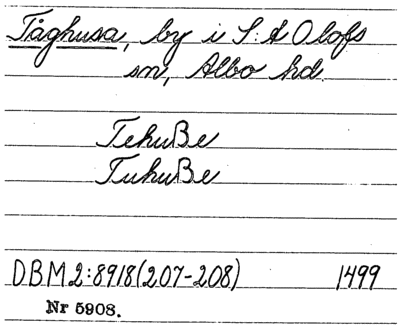 Tåghusa, by i S:t Olofs
sn, Albo hd.
Tehuße
Tuhuße
DBM2:8918(207-208) 1499
Nr 5908.